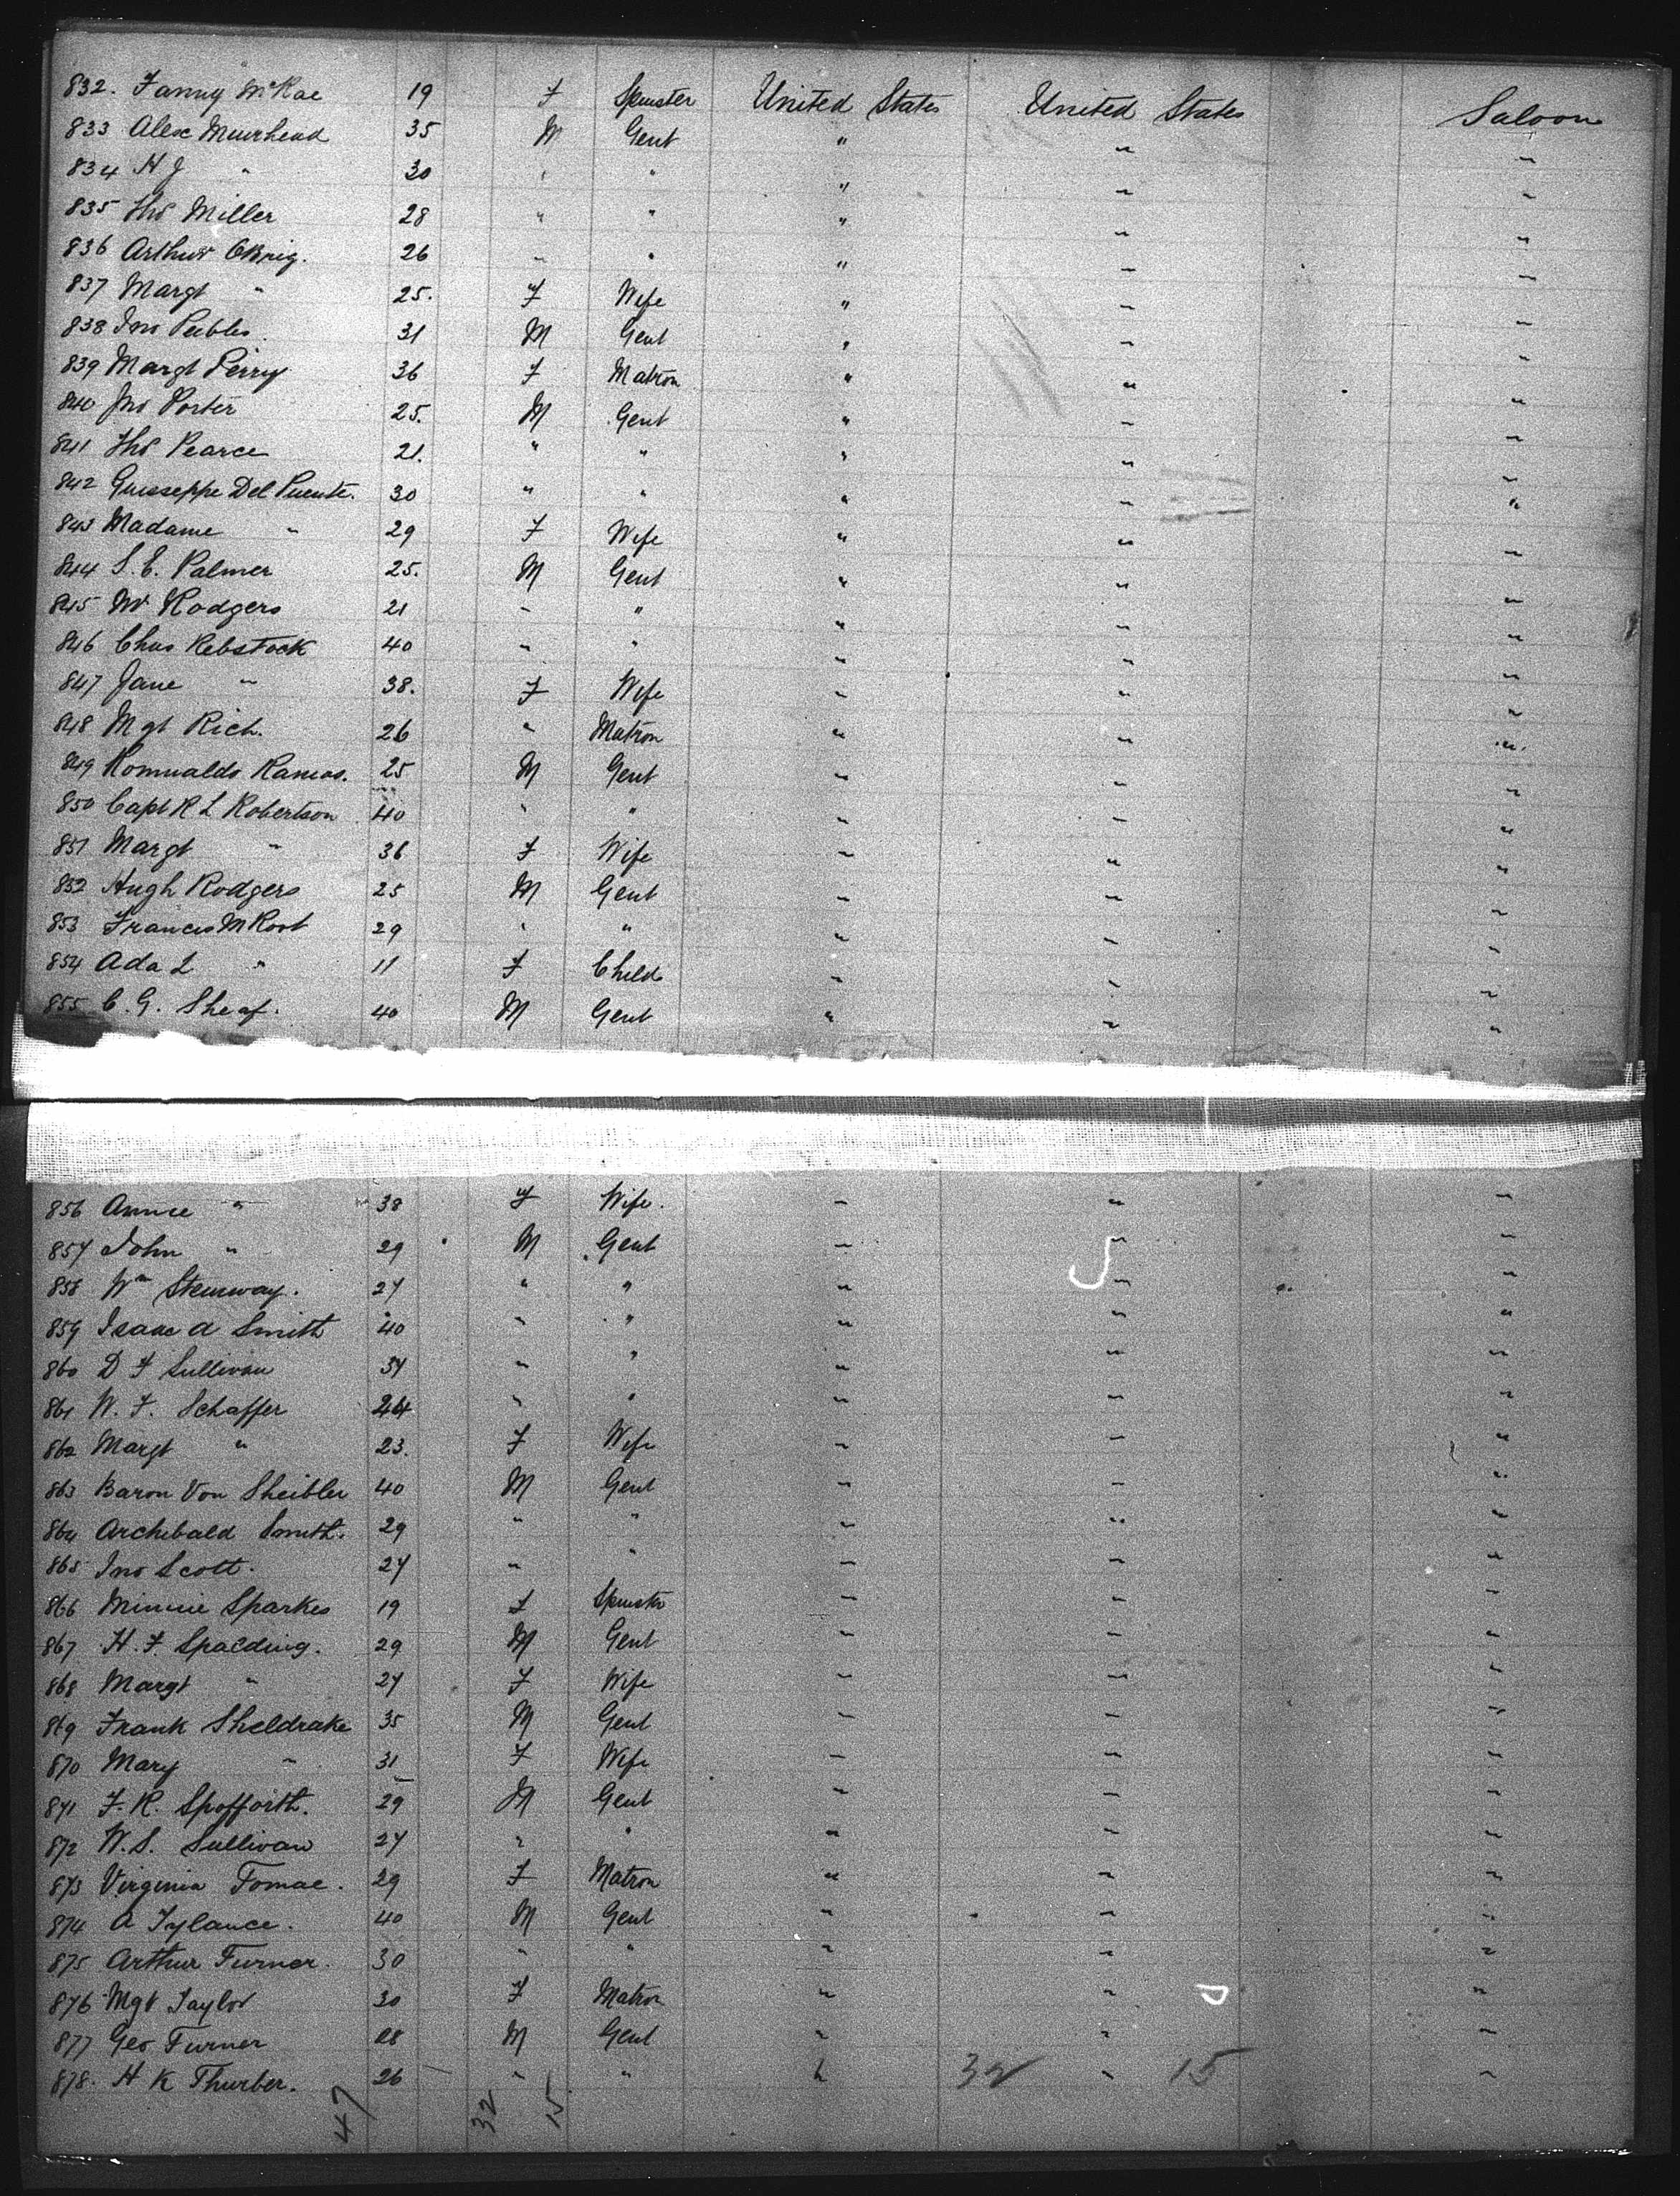 832. Fanny McRae 19 F Spinster United States United States Saloon
833 Alex Muirhead 35 M Gent " " "
834 H J " 30 " " " " "
835 Ths Miller 28 " " " " "
836 Arthur Obrig. 26 " " " " "
837 Margt " 25. F Wife " " "
838 Jno Peebles. 31 M Gent " " "
839 Margt Perry 36 F Matron " " "
840 Jno Porter 25. M Gent " " "
841 Ths Pearce 21. " " " " "
842 Guisseppe Del Puente. 30 " " " " "
843 Madame " 29 F Wife " " "
844 S. E. Palmer 25. M Gent " " "
845 Wm Rodgers 21 " " " " "
846 Chas Rebstock 40 " " " " "
847 Jane " 38. F Wife " " "
848 Mgt Rich. 26 " Matron " " "
849 Romualds Ramos. 25 M Gent " " "
850 Capt R L Robertson 40 " " " " "
851 Margt " 36 F Wife " " "
852 Hugh Rodgers 25 M Gent " " "
853 Francis M Root 29 " " " " "
854 Ada L " 11 F Child " " "
855 C. G. Sheaf. 40 M Gent " " "
856 Annie " 38 F Wife. " " "
857 John " 29 M Gent " " "
858 Wm Steinway. 27 " " " " "
859 Isaac A Smith 40 " " " " "
860 D F Sullivan 34 " " " " "
861 W. F. Schaffer 24 " " " " "
862 Margt " 23. F Wife " " "
863 Baron Von Sheibler 40 M Gent " " "
864 Archibald Smith. 29 " " " " "
865 Jno Scott. 27 " " " " "
866 Minnie Sparkes 19 F Spinster " " "
867 H. F. Spalding. 29 M Gent " " "
868 Margt " 27 F Wife " " "
869 Frank Sheldrake 35 M Gent " " "
870 Mary " 31 F Wife " " "
871 F. R. Spofforth. 29 M Gent " " "
872 W. S. Sullivan 27 " " " " "
873 Virginia Tomae. 29 F Matron " " "
874 A Tylance. 40 M Gent " " "
875 Arthur Turner. 30 " " " " "
876 Mgt Taylor 30 F Matron " " "
877 Geo Turner 28 M Gent " " "
878. H K Thurber. 26 " " " 32 " 15 "
47 32 15